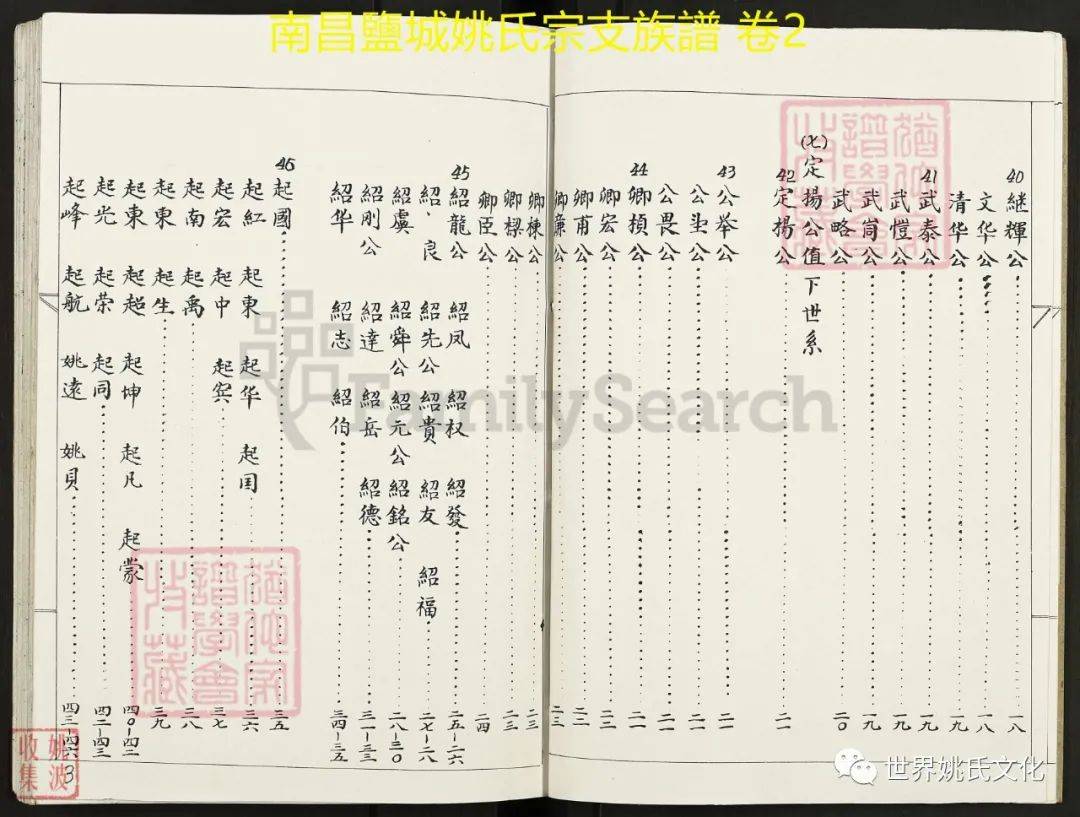 南昌鹽城姚氏宗支族譜 卷2
40 继輝公 一八
文华公 一八
清华公 一九
41 武泰公 一九
武愷公 一九
武崗公 一九
武略公 二〇
(七)定揚公值下世系
42 定揚公 二一
43 公举公 二一
公坒公 二一
公畏公 二一
44 卿楨公 二一
卿宏公 二二
卿甫公 二二
卿廉公 二三
卿棟公 二三
卿樑公 二三
卿臣公 二四
45 紹龍公 紹凤 紹权 紹發 二五-二六
紹良 紹先公 紹貴 紹友 紹福 二七-二八
紹虞 紹舜公 紹元公 紹銘公 二八-三〇
紹刚公 紹達 紹岳 紹德 三一-三三
紹华 紹志 紹伯 三四-三五
46 起國 三五
起紅 起東 起华 起国 三六
起宏 起中 起宾 三七
起南 起禹 三八
起東 起生 三九
起東 起超 起坤 起凡 起蒙 四〇-四二
起光 起荣 起同 四二-四三
起峰 起航 姚遠 姚貝 四三-四六
3
猶他家譜學會收藏
猶他家譜學會收藏
FamilySearch
姚波收集
世界姚氏文化